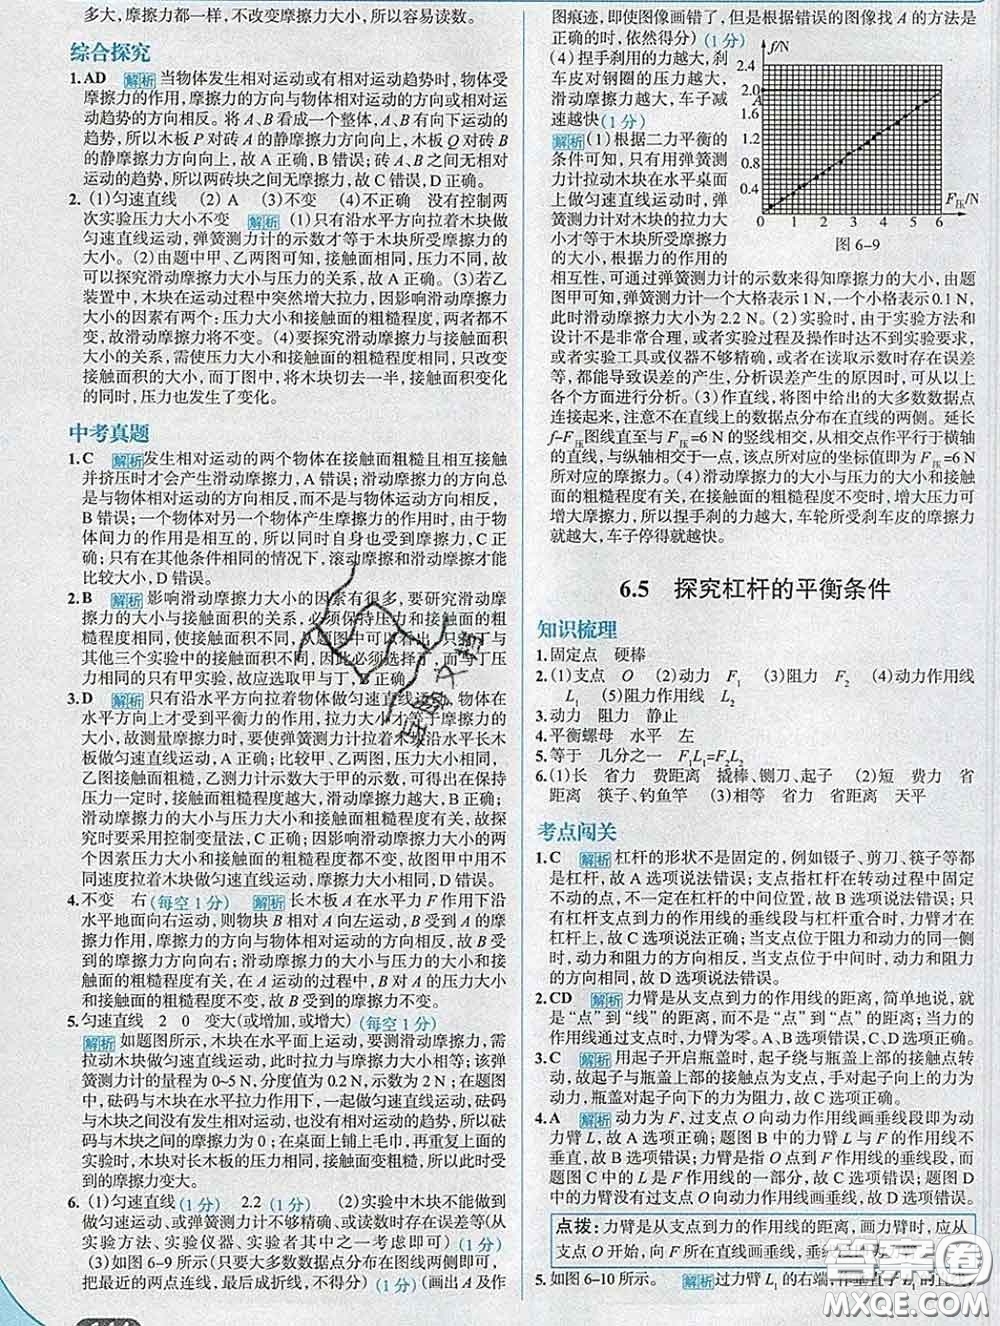 多大,摩擦力都一样,不改变摩擦力大小,所以容易读数。
综合探究
1.AD 解析 当物体发生相对运动或有相对运动趋势时,物体受
摩擦力的作用,摩擦力的方向与物体相对运动的方向或相对运
动趋势的方向相反。将A、B看成一个整体,A、B有向下运动的
趋势,所以木板P对砖A的静摩擦力方向向上,木板Q对砖B
的静摩擦力方向向上,故A正确,B错误;砖A、B之间无相对
运动的趋势,所以两砖块之间无摩擦力,故C错误,D正确。
2. (1)匀速直线 (2) A (3)不变 (4)不正确 没有控制两
次实验压力大小不变 解析 (1)只有沿水平方向拉着木块做
匀速直线运动,弹簧测力计的示数才等于木块所受摩擦力的
大小。(2)由题中甲、乙两图可知,接触面相同,压力不同,故
可以探究滑动摩擦力大小与压力的关系,故A正确。(3)若乙
装置中,木块在运动过程中突然增大拉力,因影响滑动摩擦力
大小的因素有两个:压力大小和接触面的粗糙程度,两者都不
变,故滑动摩擦力将不变。(4)要探究滑动摩擦力与接触面积
大小的关系,需使压力大小和接触面的粗糙程度相同,只改变
接触面积的大小,而丁图中,将木块切去一半,接触面积变化
的同时,压力也发生了变化。
中考真题
1.C 解析 发生相对运动的两个物体在接触面粗糙且相互接触
并挤压时才会产生滑动摩擦力,A错误;滑动摩擦力的方向总
是与物体相对运动的方向相反,而不是与物体运动方向相反,
B错误;一个物体对另一个物体产生摩擦力的作用时,由于物
体间力的作用是相互的,所以同时自身也受到摩擦力,C正
确;只有在其他条件相同的情况下,滚动摩擦和滑动摩擦才能
比较大小,D错误。
2.B 解析 影响滑动摩擦力大小的因素有很多,要研究滑动摩
擦力的大小与接触面积的关系,必须保持压力和接触面的粗
糙程度相同,使接触面积不同,从题图中可以看出,只有丁与
其他三个实验中的接触面积不同,因此必须选择丁,而与丁压
力相同的只有甲实验,故应选取甲与丁,B正确。
3.D 解析 只有沿水平方向拉着物体做匀速直线运动,物体在
水平方向上才受到平衡力的作用,拉力大小才等于摩擦力大
小,故测量摩擦力时,要使弹簧测力计拉着木块沿水平长木
板做匀速直线运动,A正确;比较甲、乙两图,压力相同,
乙图接触面粗糙,乙测力计示数大于甲的示数,可得出在保持
压力一定时,接触面粗糙程度越大,滑动摩擦力越大,B正确;
滑动摩擦力的大小与压力大小和接触面的粗糙程度有关,故探
究时要采用控制变量法,C正确;因影响滑动摩擦力大小的两
个因素压力大小和接触面的粗糙程度都不变,故图甲中用不
同速度拉着木块做匀速直线运动,滑动摩擦力大小相等,D错误。
4.不变 右(每空1分) 解析 长木板A在水平力F作用下沿
水平地面向右运动,则物块B相对A向左运动,B受到A的摩
擦力作用,摩擦力的方向与物体相对运动的方向相反,故B受
到的摩擦力方向向右;滑动摩擦力的大小与压力的大小和接
触面的粗糙程度有关,在A运动的过程中,B对A的压力大小
和接触面的粗糙程度不变,故B受到的摩擦力大小不变。
5.匀速直线 2 0 变大(或增加,或增大)(每空1分)
解析 如题图所示,木块在水平面上运动,要测滑动摩擦力,需
拉动木块做匀速直线运动,此时拉力与摩擦力大小相等;该弹
簧测力计的量程为0~5 N,分度值为0.2 N,示数为2 N;在题图
中,砝码与木块在水平拉力作用下,一起做匀速直线运动,砝码
与木块之间没有发生相对运动,也没有相对运动的趋势,所以砝
码与木块之间的摩擦力为0;在桌面上铺上毛巾,再重复上面的
实验时,木块对长木板的压力相同,接触面变粗糙,所以此时受
到的摩擦力变大。
6. (1)匀速直线(1分) 2.2(1分) (2)实验中木块不能做到
做匀速直线运动,或弹簧测力计不够精确、或读数时存在误差等(从
实验方法、实验仪器、实验者其中之一考虑即可)(1分)
(3)如图6-9所示(只要大多数数据点分布在直线两侧即可,
把最近的两点连线,最后成折线,不得分)(1分)(画出A及作
图痕迹,即使图像画错了,但是根据错误的图像找A的方法是
正确的时,依然得分)(1分)
(4)捏手刹用的力越大,刹
车皮对钢圈的压力越大,
滑动摩擦力越大,车子减
速越快(1分)
解析 (1)根据二力平衡的
条件可知,只有用弹簧测
力计拉动木块在水平桌面
上做匀速直线运动时,弹
簧测力计对木块的拉力大
小才等于木块所受摩擦力
的大小,根据力的作用的
f/N
2.4
2.0
A
1.6
1.2
0.8
0.4
0 1 2 3 4 5 6
F压/N
图6-9
相互性,可通过弹簧测力计的示数来得知摩擦力的大小,由题
图甲可知,弹簧测力计一个大格表示1 N,一个小格表示0.1 N,
此时滑动摩擦力大小为2.2 N。(2)实验时,由于实验方法和
设计不是非常合理,或者实验过程及操作时达不到实验要求,
或者实验工具或仪器不够精确,或者在读取示数时存在误差
等,都能导致误差的产生,分析误差产生的原因时,可从以上
各个方面进行分析。(3)作直线,将图中给出的大多数数据点
连接起来,注意不在直线上的数据点分布在直线的两侧。延长
f-F压图线直至与F压=6 N的竖线相交,从相交点作平行于横轴
的直线,与纵轴相交于一点,该点所对应的坐标值即为F压=6 N
所对应的摩擦力。(4)滑动摩擦力的大小与压力的大小和接触
面的粗糙程度有关,在接触面的粗糙程度不变时,增大压力可
增大摩擦力,所以捏手刹的力越大,车轮所受刹车皮的摩擦力
就越大,车子停得就越快。
6.5 探究杠杆的平衡条件
知识梳理
1.固定点 硬棒
2.(1)支点 O (2)动力 F1 (3)阻力 F2 (4)动力作用线
L1 (5)阻力作用线 L2
3.动力 阻力 静止
4.平衡螺母 水平 左
5.等于 几分之一 F1L1=F2L2
6.(1)长 省力 费距离 撬棒、铡刀、起子 (2)短 费力 省
距离 筷子、钓鱼竿 (3)相等 省力 省距离 天平
考点闯关
1.C 解析 杠杆的形状不是固定的,例如镊子、剪刀、筷子等都
是杠杆,故A选项说法错误;支点指杠杆在转动过程中固定
不动的点,不一定在杠杆的中间位置,故B选项说法错误;只有
支点到力的作用线的垂线段与杠杆重合时,力臂才在
杠杆上,故C选项说法正确;当支点位于阻力和动力的同一侧
时,动力与阻力的方向相反,当支点位于中间时,动力与阻力
的方向相同,故D选项说法错误。
2.CD 解析 力臂是从支点到力的作用线的距离,简单地说,就
是“点”到“线”的距离,而不是“点”到“点”的距离;当力的
作用线通过支点时,力臂为零。A、B选项错误,C、D选项正确。
3.C 解析 用起子开启瓶盖时,起子绕与瓶盖上部的接触点转
动,故起子与瓶盖上部的接触点为支点,手对起子向上的力为
动力,瓶盖对起子向下的力为阻力,C正确。
4.A 解析 动力为F,过支点O向动力作用线画垂线段即为动
力臂L,故A选项正确;题图B中的力臂L与F的作用线不
垂直,故B选项错误;力臂是指O点到F作用线的垂线段,而
题图C中的L是F作用线的一部分,故C选项错误;题图D
中的力臂没有过支点O向动力作用线画垂线,故D选项错误。
点拨:力臂是从支点到力的作用线的距离,画力臂时,应从
支点O开始,向F所在直线画垂线,
5.如图6-10所示。 解析 过力臂L1的右端,作垂直于L1的直线,
答案圈
MXQE.COM